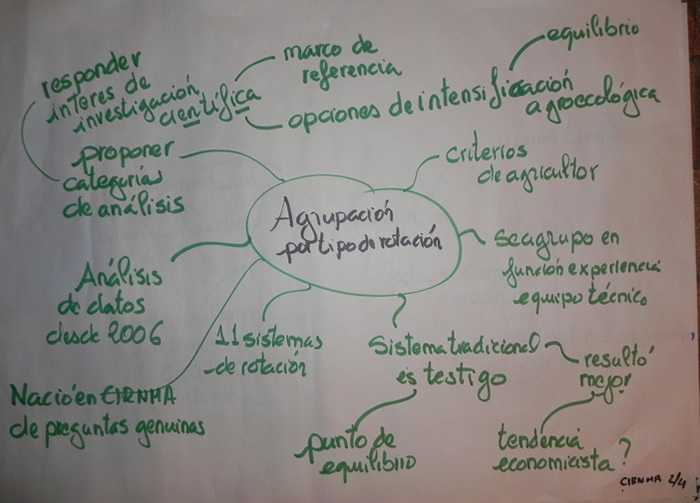 responder
interes de
investigación
científica
marco de
referencia
opciones de intensificación
agroecológica
equilibrio
proponer
categorías
de análisis
criterios
de agricultor
Agrupación
por tipo de rotación
se agrupo en
función experiencia
equipo técnico
Análisis
de datos
desde 2006
11 sistemas
de rotación
Sistema tradicional
es testigo
resultó
mejor
Nació en CIENHA
de preguntas genuinas
punto de
equilibrio
tendencia
economicista?
CIENHA 2/4